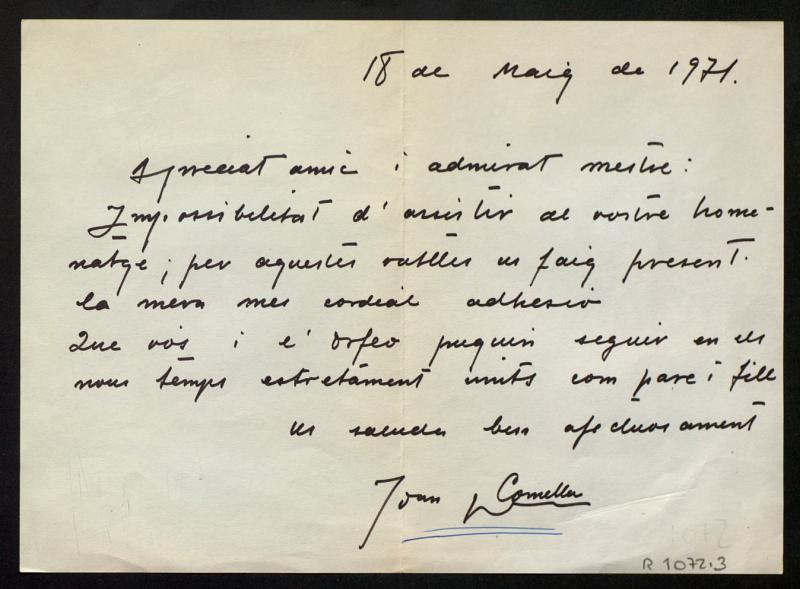 18 de Maig de 1971.
Apreciat amic i admirat mestre:
Impossibilitat d'assistir al vostre home-
natge, per aquestes ratlles us faig present
la meva mes cordial adhesió
Que vós i l'Orfeo puguin seguir en els
nous temps estretament units com pare i fill
us saluda ben afectuosament
Joan Comella
1072
R 1072.3